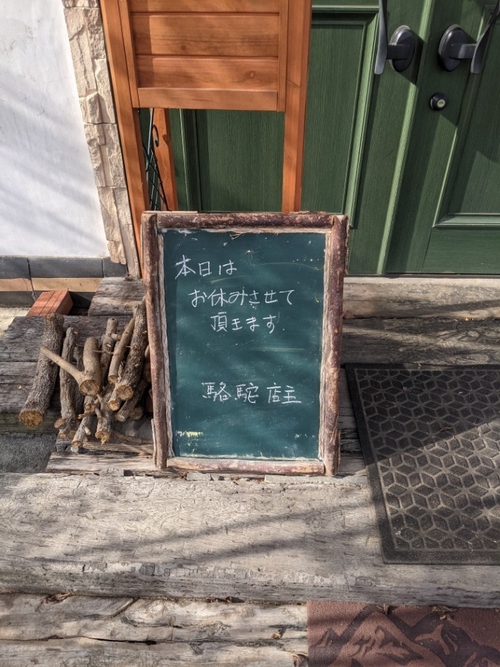 本日は
お休みさせて
頂きます
駱駝 店主